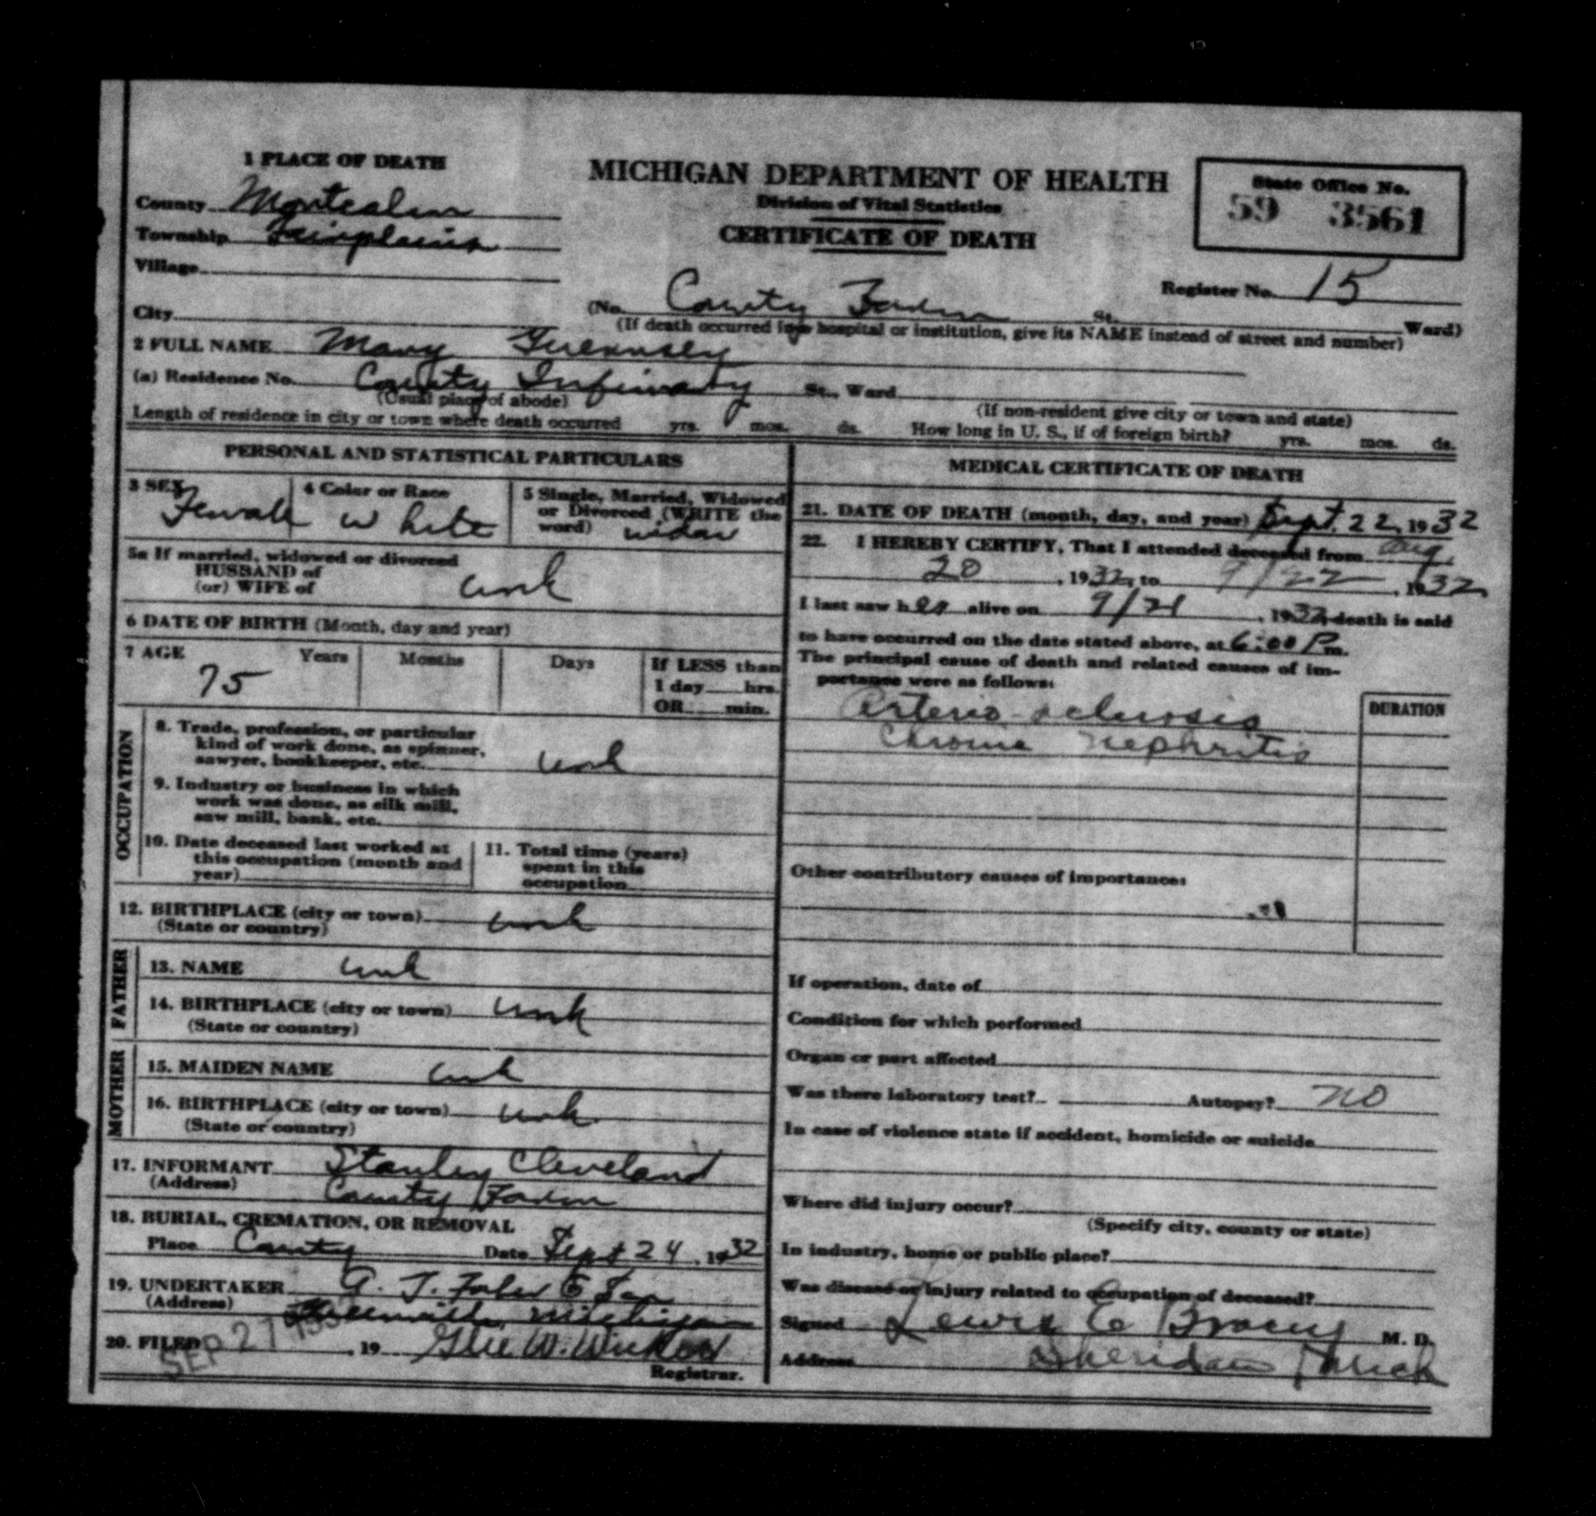 1 PLACE OF DEATH
MICHIGAN DEPARTMENT OF HEALTH
Division of Vital Statistics
CERTIFICATE OF DEATH
State Office No.
59 3561
County Montcalm
Township Fairplains
Village
City
(No. County Farm St. Ward)
Register No. 15
(If death occurred in a hospital or institution, give its NAME instead of street and number)
2 FULL NAME Mary Guernsey
(a) Residence No. County Infirmary St., Ward
(Usual place of abode)
(If non-resident give city or town and state)
Length of residence in city or town where death occurred yrs. mos. ds. How long in U. S., if of foreign birth? yrs. mos. ds.
PERSONAL AND STATISTICAL PARTICULARS
3 SEX Female
4 Color or Race White
5 Single, Married, Widowed or Divorced (WRITE the word) widow
5a If married, widowed or divorced
HUSBAND of
(or) WIFE of unk
6 DATE OF BIRTH (Month, day and year)
7 AGE 75 Years Months Days If LESS than 1 day hrs. OR min.
OCCUPATION
8. Trade, profession, or particular
kind of work done, as spinner,
sawyer, bookkeeper, etc. unk
9. Industry or business in which
work was done, as silk mill,
saw mill, bank, etc.
10. Date deceased last worked at
this occupation (month and
year)
11. Total time (years)
spent in this
occupation
12. BIRTHPLACE (city or town) unk
(State or country)
FATHER
13. NAME unk
14. BIRTHPLACE (city or town) unk
(State or country)
MOTHER
15. MAIDEN NAME unk
16. BIRTHPLACE (city or town) unk
(State or country)
17. INFORMANT Stanley Cleveland
(Address) County Farm
18. BURIAL, CREMATION, OR REMOVAL
Place County Date Sept 24, 1932
19. UNDERTAKER
(Address) Greenville, Michigan
20. FILED SEP 27 19
Registrar.
MEDICAL CERTIFICATE OF DEATH
21. DATE OF DEATH (month, day, and year) Sept. 22, 1932
22. I HEREBY CERTIFY, That I attended deceased from Aug.
20, 1932, to 9/22, 1932
I last saw her alive on 9/21, 1932, death is said
to have occurred on the date stated above, at 6:00 P.m.
The principal cause of death and related causes of im-
portance were as follows:
DURATION
Arterio-sclerosis
Chronic Nephritis
Other contributory causes of importance:
If operation, date of
Condition for which performed
Organ or part affected
Was there laboratory test? Autopsy? no
In case of violence state if accident, homicide or suicide
Where did injury occur?
(Specify city, county or state)
In industry, home or public place?
Was disease or injury related to occupation of deceased?
Signed Lewis E Bracey M. D.
Address Sheridan Mich